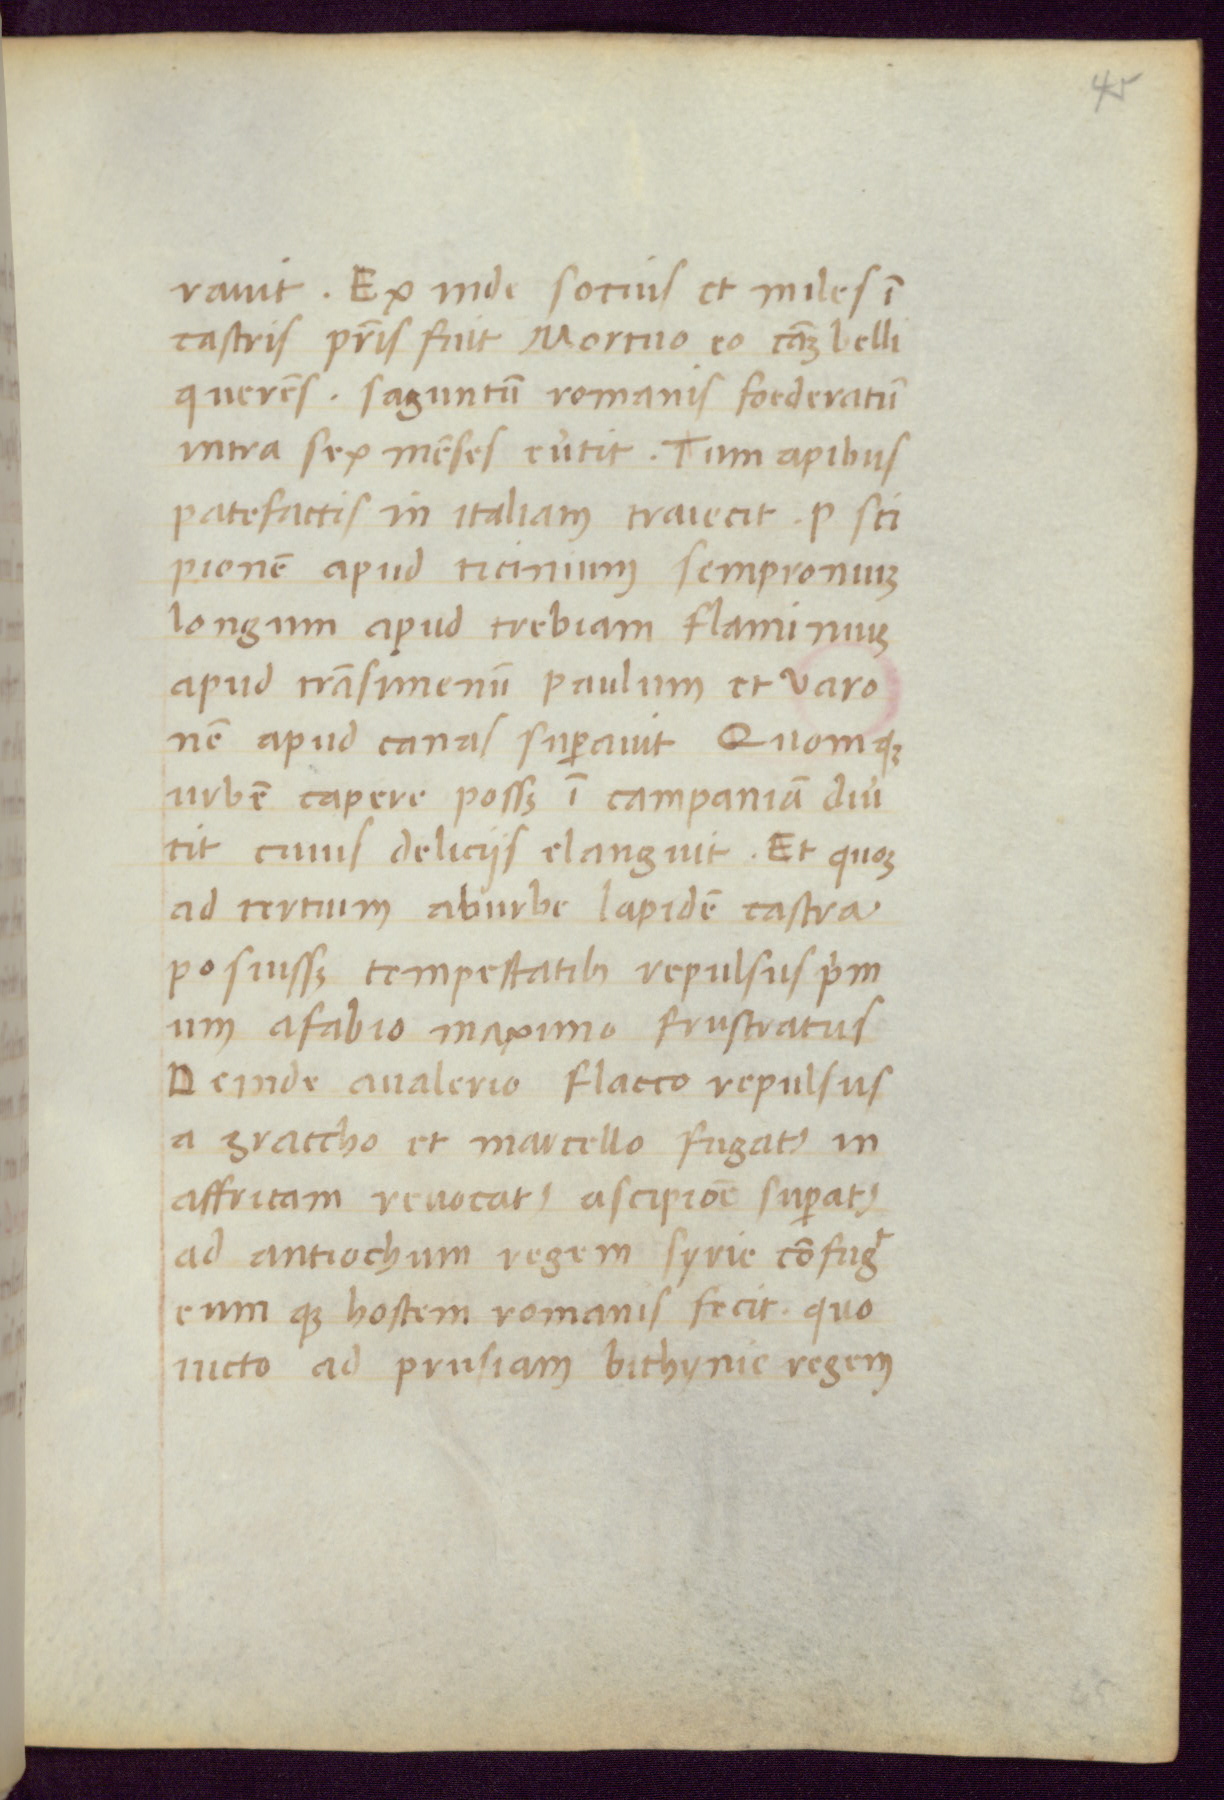 45
rauit . Ex inde socius et miles ī
castris pr̄is fuit Mortuo eo cāꝫ belli
querēs . saguntū romanis foederatū
intra sex mēses eu̇tit . Tum apibus
patefactis in italiam traiecit . p sci
pionē apud ticinium semproniuꝫ
longum apud trebiam flaminiuꝫ
apud trāsimenū paulum et varo
nē apud canas suꝑauit Quomqꝫ
urbē capere possꝫ ī campaniā diu̇
tit cuius deliciis elanguit . Et quoꝫ
ad tertium aburbe lapidē castra
posuissꝫ tempestatibꝫ repulsus pi̇m
um afabio maximo frustratus
Deinde aualerio flacco repulsus
a graccho et marcello fugatꝰ in
affricam reuocatꝰ ascipiōe suꝑatꝰ
ad antiochum regem syrie cōfugͭ
eum qꝫ hostem romanis fecit . quo
uicto ad prusiam bithynie regem